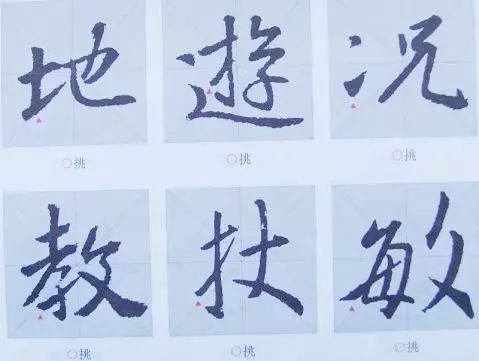 地 遊 况
○挑 ○挑 ○挑
教 扙 敏
○挑 ○挑 ○挑